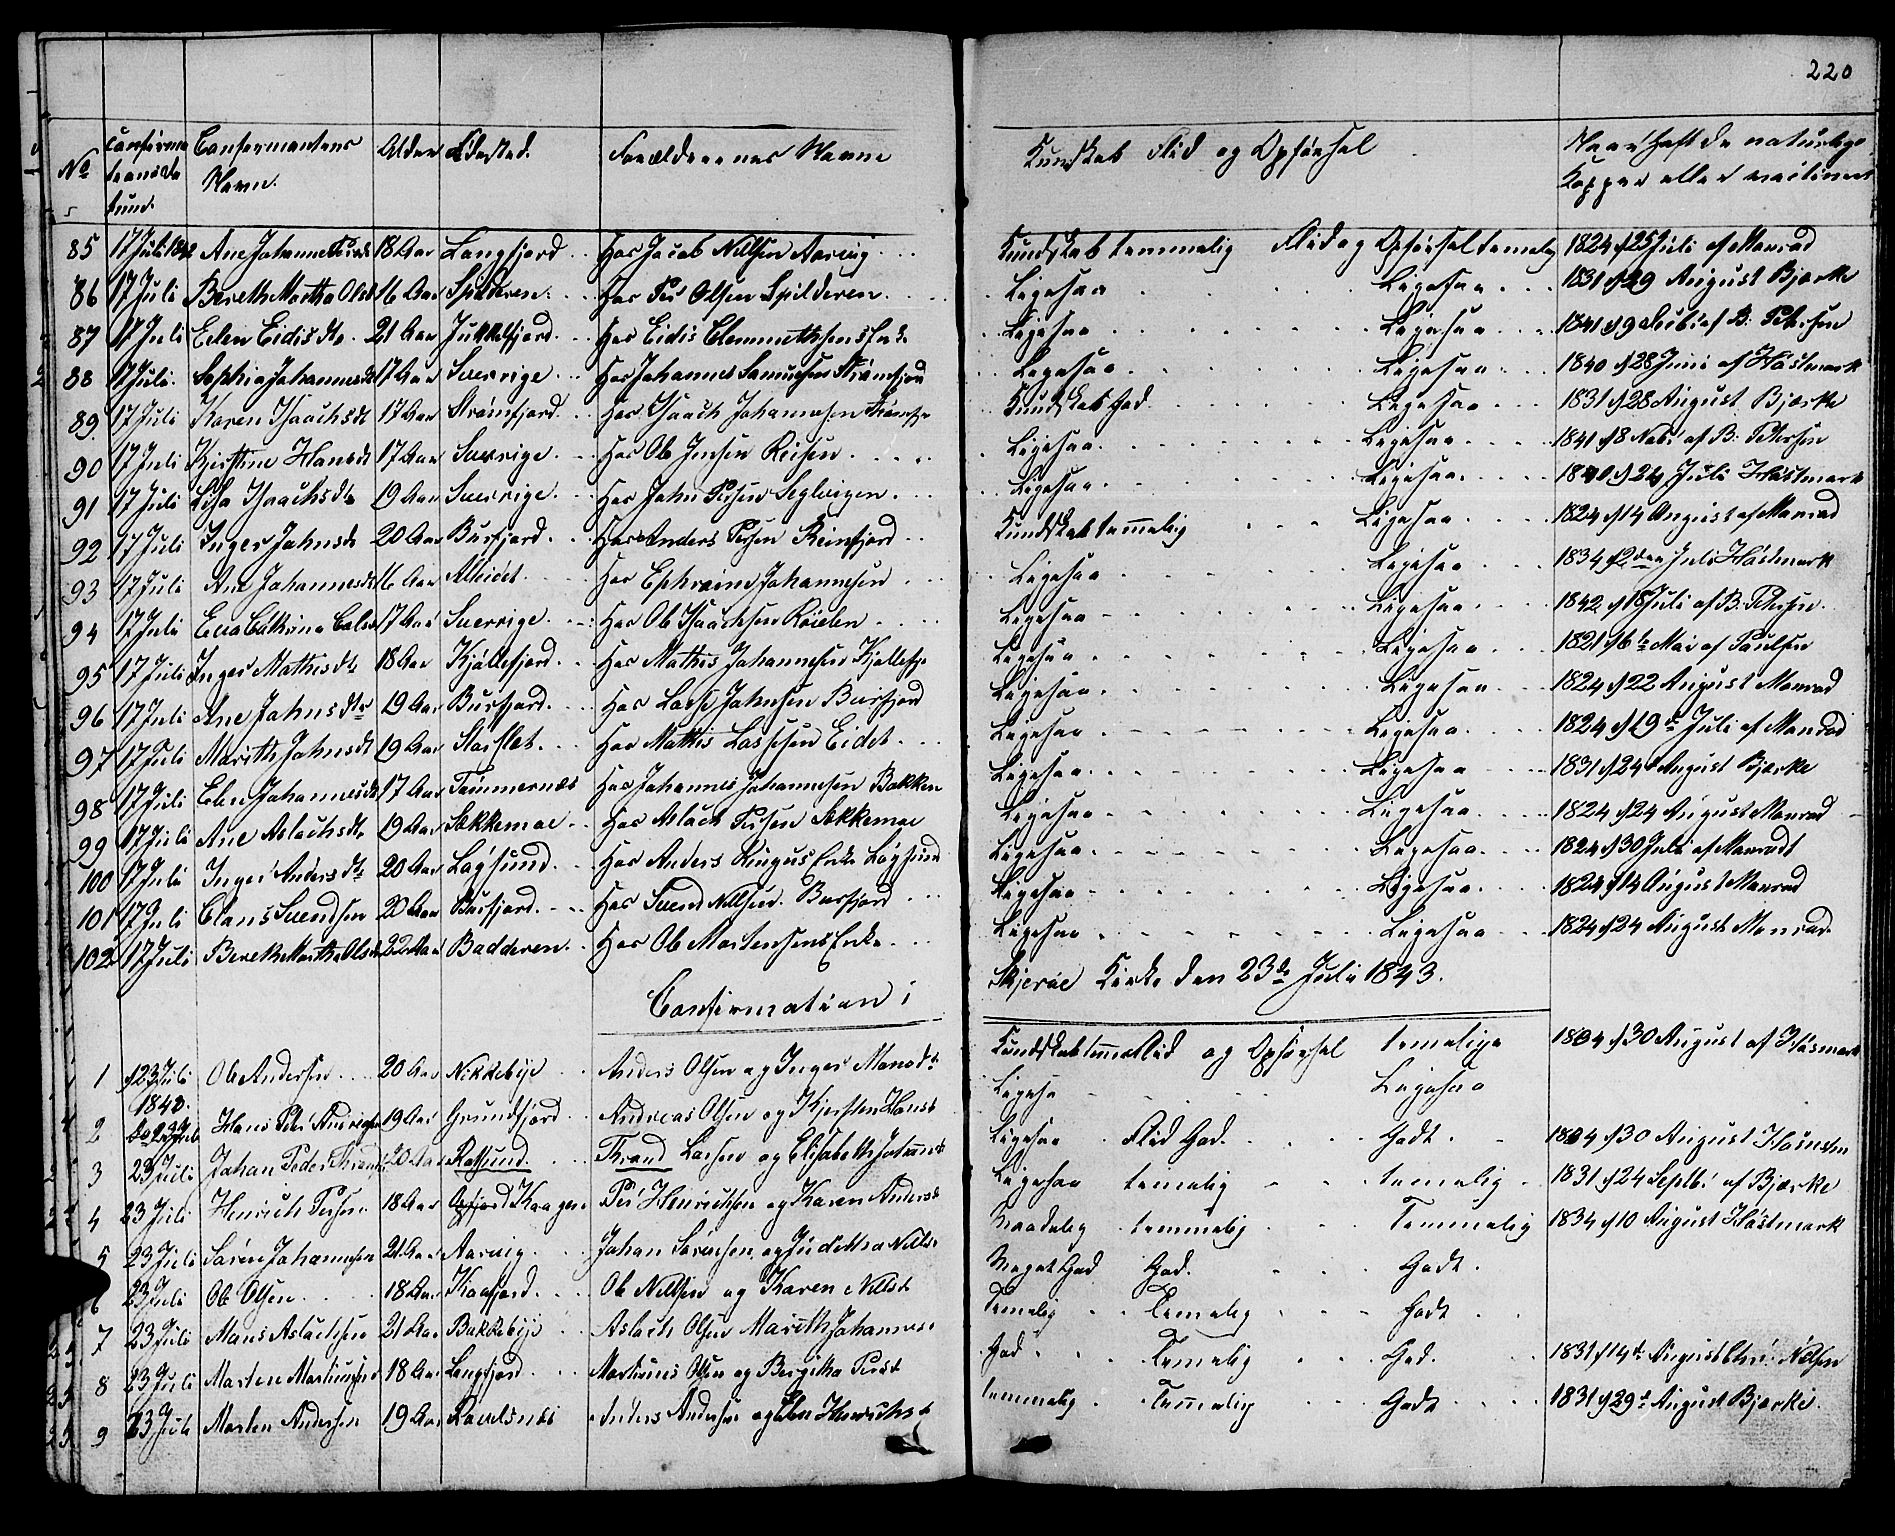 220
No
Confirma
tionsda
tum.
Confirmantens
Navn.
Alder
Fødested.
Forældrenes Navne
Kundskab Flid og Opførsel
Naar haft de naturlige
Kopper eller vaccineret
85 17 Juli 1842 Ane Johanne 18 Aar Langfjord Hos Jacob Nilsen Aarvig Kundskab temmelig Flid og Opførsel temelig 1824 d 25 Juli af Monrad
86 17 Juli Bereth Martha Olsd 16 Aar Spilderen Hos Per Olsen Spilderen Ligesaa Ligesaa 1831 d 29 August Bjerke
87 17 Juli Elen Eidisdtr 21 Aar Jukkelfjord Hos Eidis Clemmethsens Enke Ligesaa Ligesaa 1841 d 9 af B. Petersen
88 17 Juli Sophia Johannesdt 17 Aar Sverrige Hos Johannes Samuelsen Strømfjord Ligesaa Ligesaa 1840 d 28 Juni af Hostmark
89 17 Juli Karen Isaachsdt 17 Aar Strømfjord Hos Isaach Johannesen Strømfj Kundskab God Ligesaa 1831 d 28 August Bjerke
90 17 Juli Kjirstine Hansdt 17 Aar Sverrige Hos Ole Jensen Reisen Ligesaa Ligesaa 1841 d 8 Nobr af B. Petersen
91 17 Juli Lisa Isaachsdtr 19 Aar Sverrige Hos John Persen Seglvigen Ligesaa Ligesaa 1840 d 24 Juli Hostmark
92 17 Juli Inger Johnsdt 20 Aar Burfjord Hos Anders Persen Reinfjord Kundskab temmelig Ligesaa 1824 d 14 August af Monrad
93 17 Juli Ane Johannesdt 16 Aar Alteidet Hos Ephraim Johannesen Ligesaa Ligesaa 1834 d 2den Juli Hostmark
94 17 Juli Eva Cathrina 17 Aar Sverrige Hos Ole Isaachsen Ligesaa Ligesaa 1842 d 18 Juli af B. Petersen
95 17 Juli Inger Mathisdt 18 Aar Kjøllefjord Hos Mathis Johannesen Kjøllefj Ligesaa Ligesaa 1821 d 6te Mai af Paulsen
96 17 Juli Ane Johnsdtr 19 Aar Burfjord Hos Lasse Johnsen Burfjord Ligesaa Ligesaa 1824 d 22 August Monrad
97 17 Juli Marith Johnsdt 19 Aar Storslet Hos Mathis Lassesen Eidet Ligesaa Ligesaa 1824 d 19de Juli af Monrad
98 17 Juli Elen Johannesdt 17 Aar Tømmernæs Hos Johannes Johannesen Bakken Ligesaa Ligesaa 1831 d 24 August Bjerke
99 17 Juli Ane Aslachsdt 19 Aar Sækkemoe Hos Aslach Persen Sækkemoe Ligesaa Ligesaa 1824 d 24 August Monrad
100 17 Juli Inger Andersdt 20 Aar Løgsund Hos Anders Enke Løgsund Ligesaa Ligesaa 1824 d 30 Juli af Monradt
101 17 Juli Claus Svendsen 20 Aar Burfjord Hos Svend Nilsen Burfjord Ligesaa Ligesaa 1824 d 14 August Monrad
102 17 Juli Bereth Martha Olsdt 22 Aar Badderen Hos Ole Mortensens Enke Ligesaa Ligesaa 1824 d 24 August Monrad
Confirmation i Skjervøe Kirke den 23de Juli 1843.
1 d 23 Juli 1843. Ole Andersen 20 Aar Nikkebye Anders Olsen og Inger Monsdt Kundskab temelig Flid og Opførsel temelige 1834 d 30 August af Hosmark
2 23 Juli Hans Peter Andreasen 19 Aar Grundfjord Andreas Olsen og Kjersten Hansd Ligesa Ligesaa
3 23 Juli Johan Peder 20 Aar Rotsund Thrond Larsen og Elisabeth Johannesd Ligesaa Flid God Godt 1834 d 30 August
4 23 Juli Henrich Persen 18 Aar Kaagen Per Henrichsen og Karen Andersd Ligesaa temelig temelig 1831 d 24 Septbr af Bjerke
5 23 Juli Søren Johannesen 21 Aar Aarvig Johan Sørensen og Juditha Nilsd Maadelig temmelig Temmelig 1834 d 10 August Hostmark
6 23 Juli Ole Olsen 18 Aar Kaafjord Ole Nilsen og Karen Nilsd Meget God God Godt
7 23 Juli Mons Aslachsen 21 Aar Bakkebye Aslach Olsen Marith Johannesd Temelig Temelig Godt
8 23 Juli Morten Martinusen 18 Aar Langfjord Martinus Olsen og Bergitha Persd God Temelig God 1831 d 14de August Nilsen
9 23 Juli Morten Andersen 19 Aar Ravelsnæs Anders Andersen og Elen Henrichsd temmelig Temmelig Godt 1831 d 29de August Bjerke